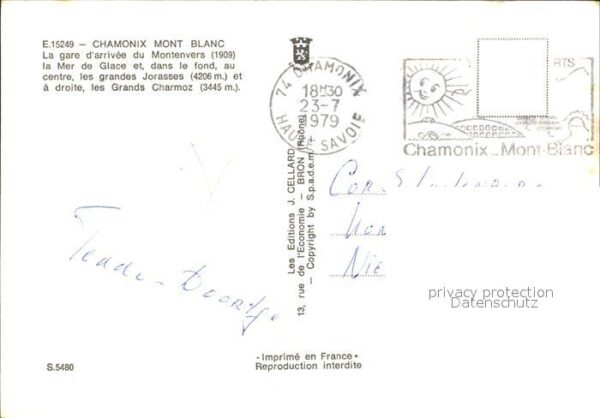 E.15249 – CHAMONIX MONT BLANC
La gare d'arrivée du Montenvers (1909)
la Mer de Glace et, dans le fond, au
centre, les grandes Jorasses (4206 m.) et
à droite, les Grands Charmoz (3445 m.).
74 CHAMONIX
18H30
23-7
1979
HAUTE SAVOIE
RTS
Chamonix_Mont-Blanc
Les Editions J. CELLARD
13, rue de l'Economie - BRON (Rhône)
– Copyright by S.p.a.d.e.m. –
privacy protection
Datenschutz
- Imprimé en France -
Reproduction interdite
S.5480